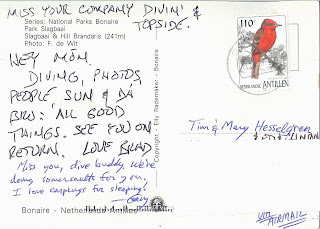 MISS YOUR COMPANY DIVIN' &
TOPSIDE.
Series: National Parks Bonaire
Park Slagbaai
Slagbaai & Hill Brandaris (241m)
Photo: F. de Wit
HEY MOM.
DIVING, PHOTOS
PEOPLE SUN & DA
BRU: ALL GOOD
THINGS. SEE YOU ON
RETURN. LOVE BRAD
Miss you, dive buddy, we're
doing somersaults for you.
I love earplugs for sleeping!
Bonaire - Netherlands Antilles
Copyright - Elly Rademaker - Bonaire
110
NEDERLANDSE ANTILLEN
Tim & Mary Hesselgren
VIA
AIRMAIL